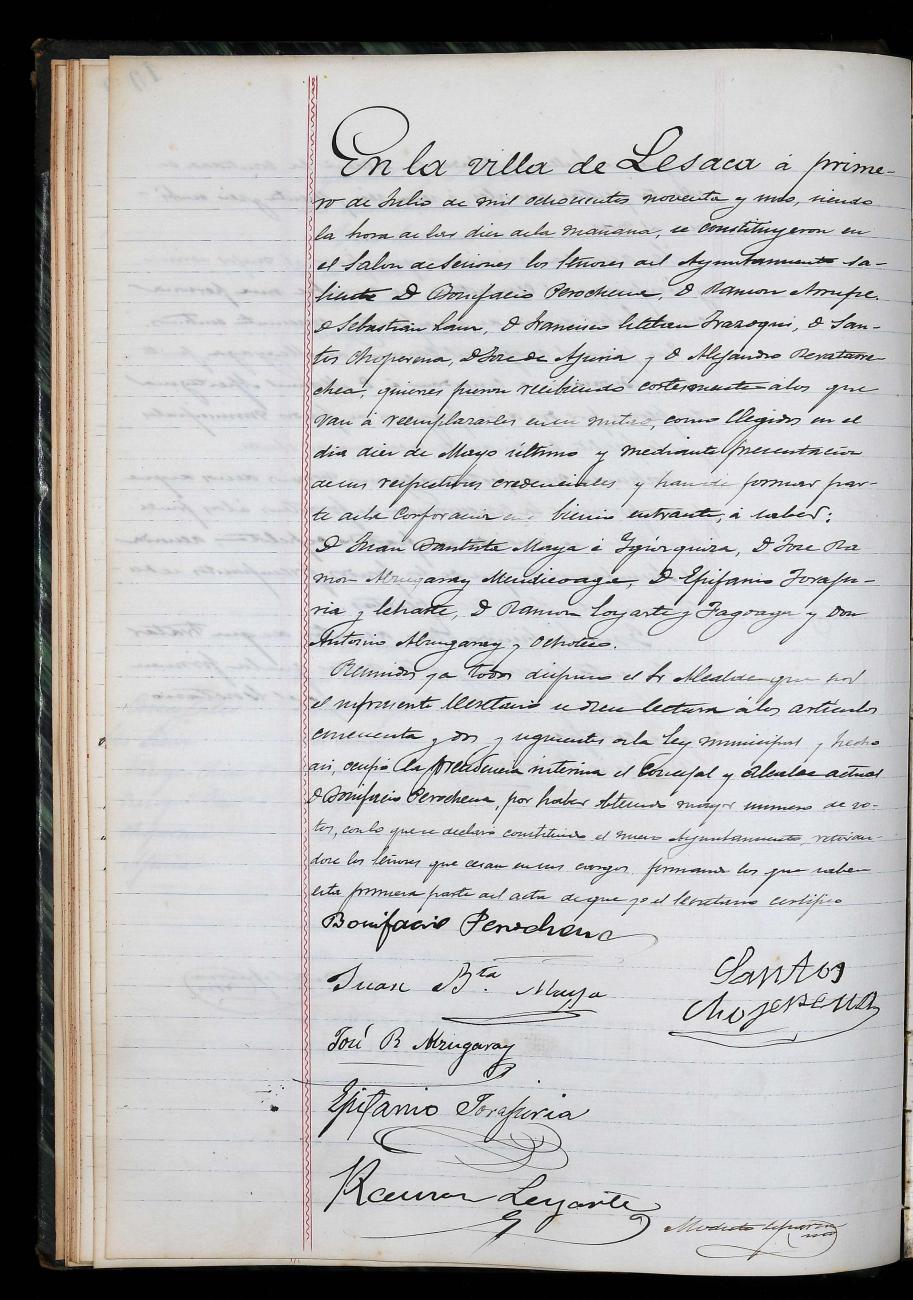 En la villa de Lesaca á prime-
ro de Julio de mil ochocientos noventa y uno, siendo
la hora de las diez de la mañana, se constituyeron en
el Salon de Sesiones los Señores del Ayuntamiento sa-
liente D Bonifacio Perochena, D Ramon Arrupe.
D Sebastian Laur, D Francisco Esteban Irazoqui, D San-
tos Choperena, D Jose de Apiria y D Alejandro Beratarre-
chea, quienes fueron recibiendo cortesmente á los que
van á reemplazarles en su mitad, como Elegidos en el
dia diez de Mayo último y mediante presentacion
de sus respectivas credenciales y han de formar par-
te de la Corporacion en bienio entrante, á saber:
D Juan Bautista Maya é Ygúzquiza, D Jose Ra
mon Alzugaray Mendicoage, D Epifanio Torapu-
ria y Uharte, D Ramon Loyarte y Fagoaga y Don
Antonio Alzugaray y Ochoteco.
Reunidos ya todos dispuso el Sr Alcalde que por
el infrascrito Secretario se diese lectura á los articulos
cincuenta y dos y siguientes de la Ley municipal y hecho
asi, ocupó la presidencia interina el Concejal y Alcalde actual
D Bonifacio Perochena, por haber obtenido mayor numero de vo-
tos, con lo que se declaró constituido el nuevo Ayuntamiento, retirán-
dose los Señores que cesan en sus cargos, firmando los que saben
esta primera parte del acta de que yo el Secretario certifico
Bonifacio Perochena
Juan B.ta Maya
Santos
Choperena
José R Alzugaray
Epifanio Torapuria
Ramon Loyarte
Modesto